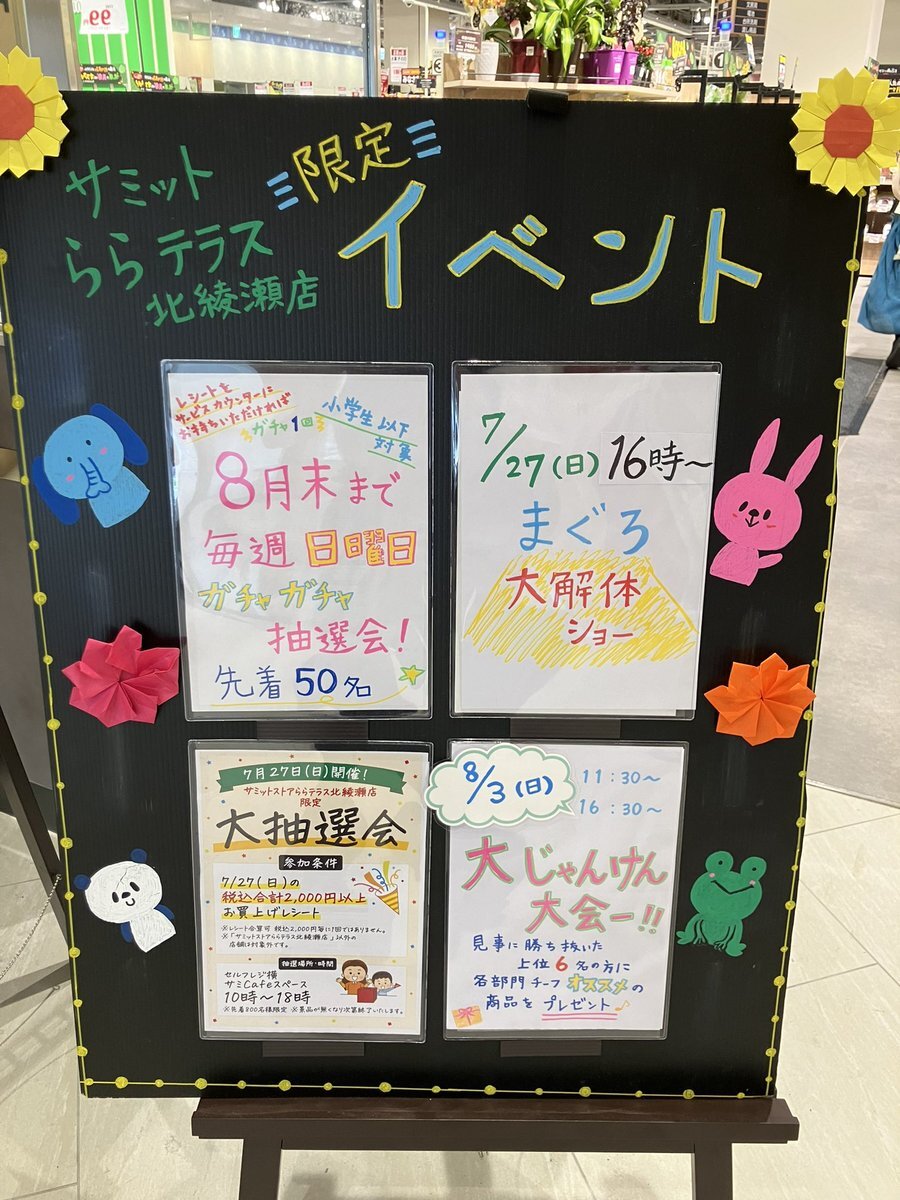 サミット
ららテラス
北綾瀬店
限定
イベント
レシートを
サービスカウンターに
お持ちいただければ
ガチャ1回
小学生以下
対象
8月末まで
毎週日曜日
ガチャガチャ
抽選会!
先着50名
7/27(日)16時〜
まぐろ
大解体
ショー
7月27日(日)開催!
サミットストアららテラス北綾瀬店
限定
大抽選会
参加条件
7/27(日)の
税込合計2,000円以上
お買上げレシート
※レシート合算可 税込2,000円毎に1回ではありません。
※「サミットストアららテラス北綾瀬店」以外の
店舗は対象外です。
抽選場所・時間
セルフレジ横
サミCafeスペース
10時〜18時
※先着800名様限定 ※景品が無くなり次第終了いたします。
8/3(日)
11:30〜
16:30〜
大じゃんけん
大会ー!!
見事に勝ち抜いた
上位6名の方に
各部門チーフオススメの
商品をプレゼント♪